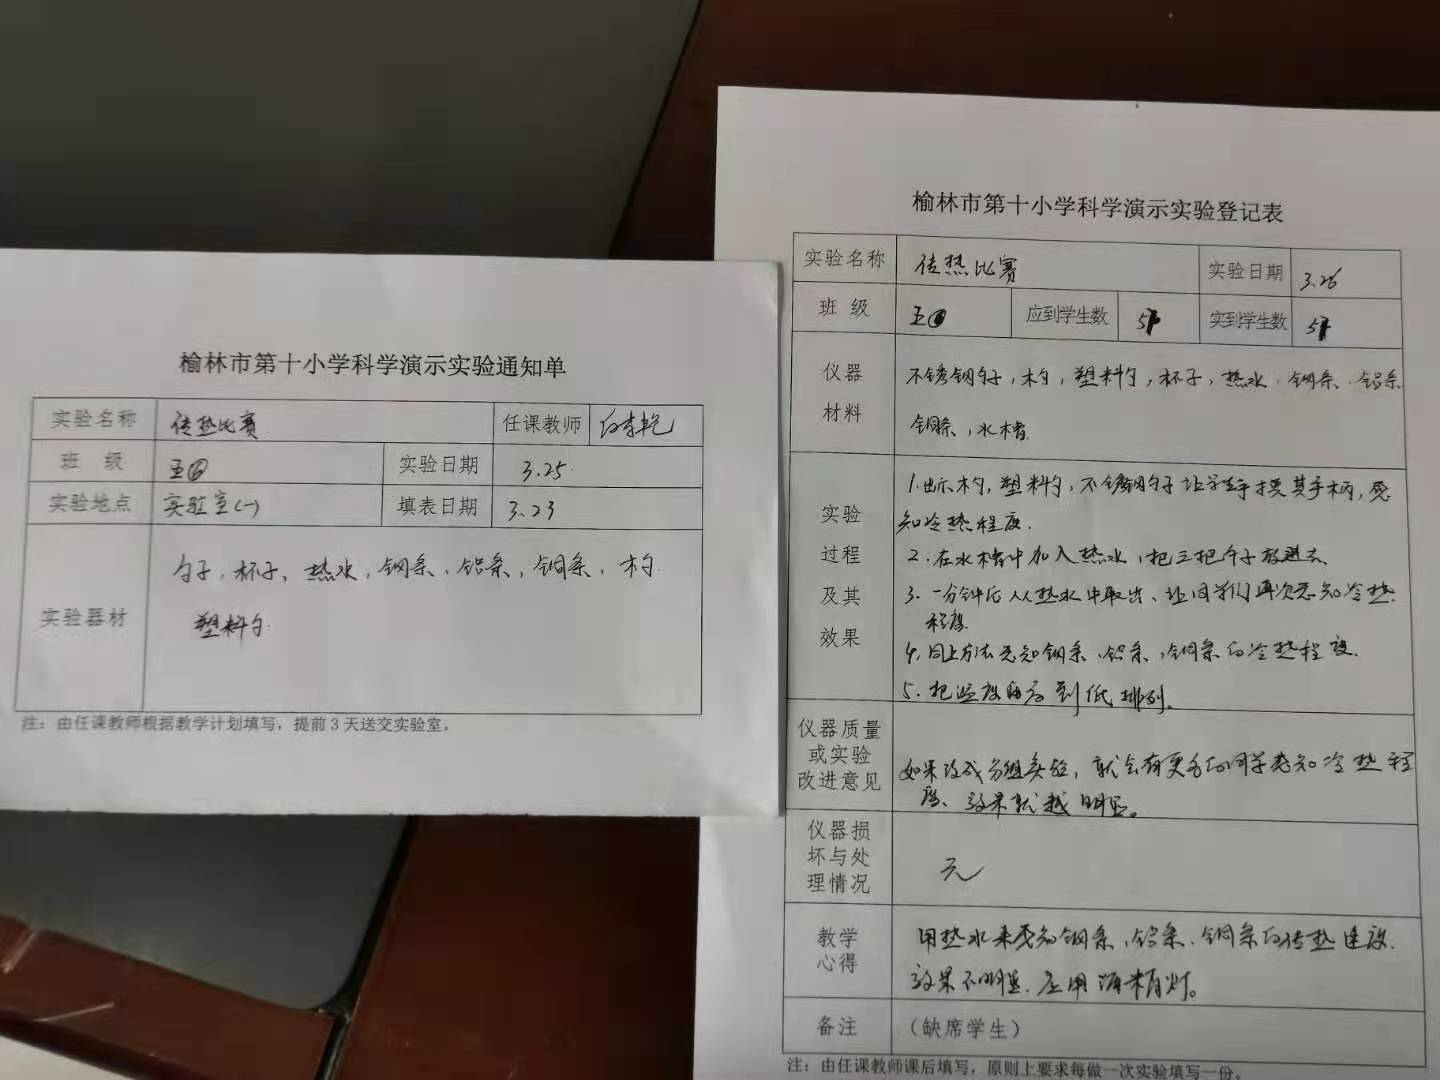 榆林市第十小学科学演示实验通知单
实验名称 传热比赛 任课教师
班 级 五 实验日期 3.25
实验地点 实验室(一) 填表日期 3.23
实验器材
勺子,杯子,热水,钢条、铝条,铜条、木勺
塑料勺
注：由任课教师根据教学计划填写，提前3天送交实验室。
榆林市第十小学科学演示实验登记表
实验名称 传热比赛 实验日期 3.26
班 级 五 应到学生数 实到学生数
仪器
材料
不锈钢勺子,木勺,塑料勺,杯子,热水、钢条、铝条
铜条,水槽
实验
过程
及其
效果
1.出示木勺,塑料勺,不锈钢勺子让学生手摸其手柄,感
知冷热程度.
2.在水槽中加入热水,把三把勺子放进去
3.一分钟后从热水中取出、让同学们再次感知冷热
程度
4.同上方法感知钢条、铝条,铜条的冷热程度.
5.把温度由高到低排列。
仪器质量
或实验
改进意见
如果改成分组实验,就会有更多的同学感知冷热程
度、效果就越明显。
仪器损
坏与处
理情况
无
教学
心得
用热水来感知钢条、铝条、铜条的传热速度.
效果不明显.应用酒精灯。
备注 （缺席学生）
注：由任课教师课后填写，原则上要求每做一次实验填写一份。